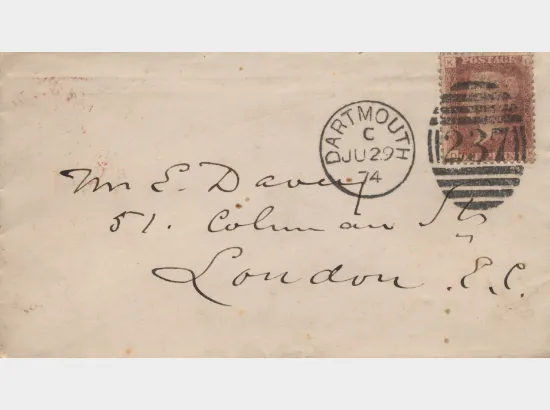 POSTAGE
DARTMOUTH
C
JU 29
74
237
Mr E. Davey
51. Colman St
London. E.C.